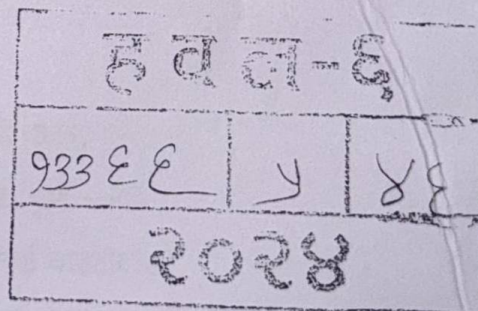 हवल-६
१३३६६ ५ ४६
२०२४